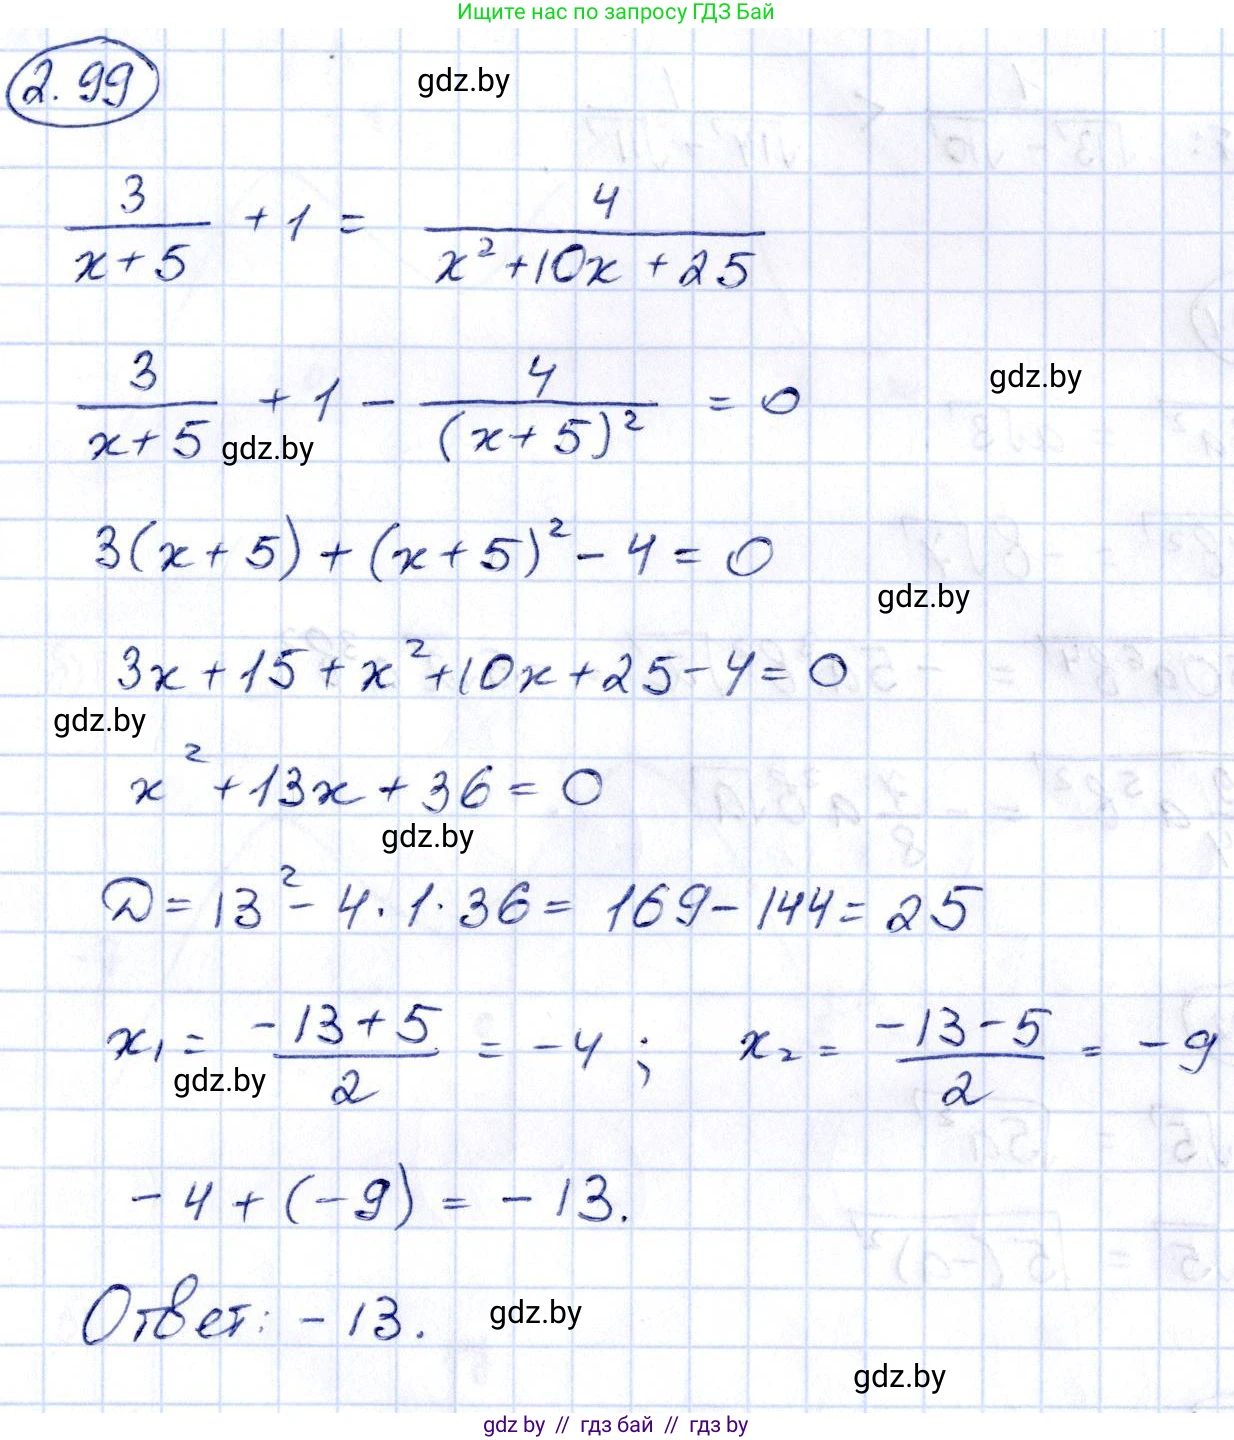 Ищите нас по запросу ГДЗ Бай
2.99
gdz.by
3/(x+5) + 1 = 4/(x²+10x+25)
3/(x+5) + 1 - 4/(x+5)² = 0
gdz.by
gdz.by
3(x+5)+(x+5)²-4=0
gdz.by
3x+15+x²+10x+25-4=0
gdz.by
x²+13x+36=0
gdz.by
D=13²-4·1·36=169-144=25
x₁= (-13+5)/2 = -4; x₂= (-13-5)/2 = -9
gdz.by
-4+(-9)=-13.
Ответ: -13.
gdz.by
gdz.by
gdz by // гдз бай // гдз by